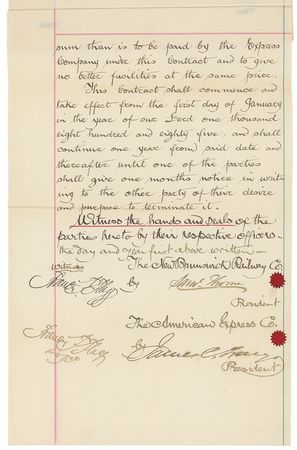 sum than is to be paid by the Express
Company under this Contract and to give
no better facilities at the same price.
This Contract shall commence and
take effect from the first day of January
in the year of our Lord one thousand
eight hundred and eighty five, and shall
continue one year from said date and
thereafter until one of the parties
shall give one months notice in writ
ing to the other party of their desire
and purpose to terminate it.
Witness the hands and seals of the
parties hereto by their respective officers
the day and year first above written
Witness The New Brunswick Railway Co.
by
President
The American Express Co.
by James C. Fargo
President